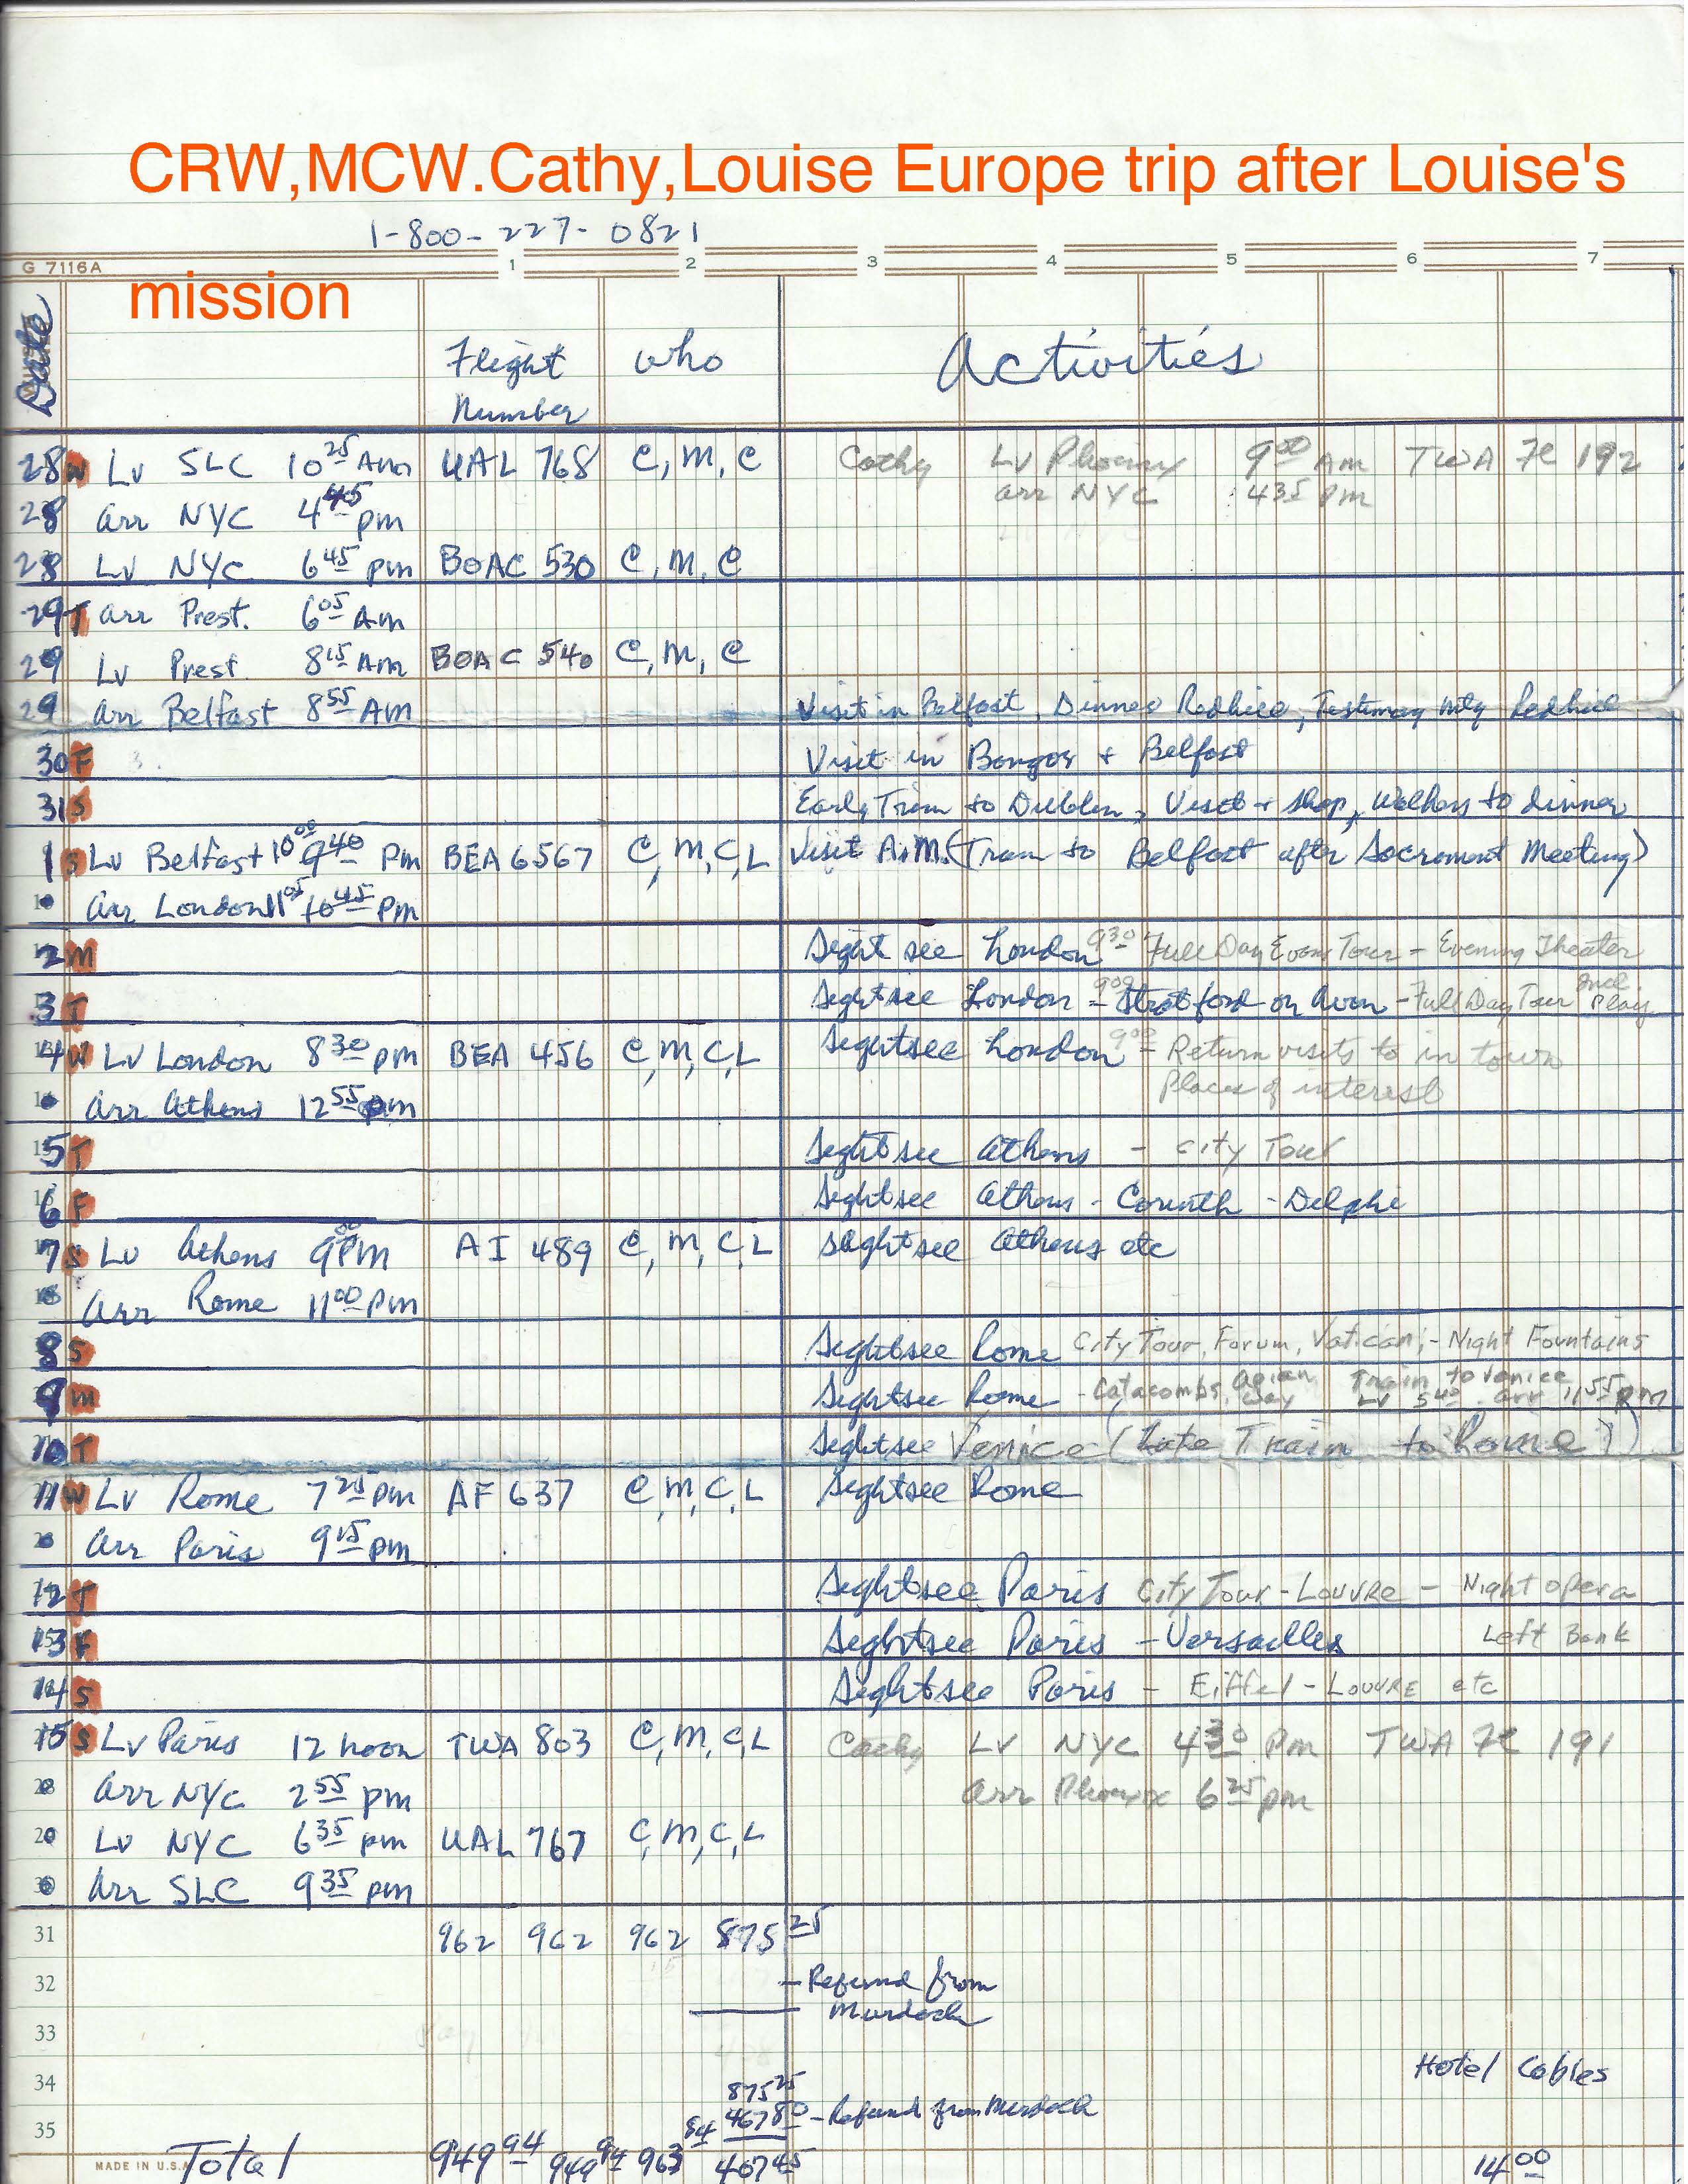 CRW,MCW.Cathy,Louise Europe trip after Louise's
1-800-227-0821
G 7116A 1 2 3 4 5 6 7
mission
Date
Flight Number who Activities
28 W Lv SLC 10 25 Am UAL 768 C, M, C Cathy Lv Phoenix 9 00 Am TWA 192
28 Arr NYC 4 45 pm arr NYC 4 35 Pm
28 Lv NYC 6 45 pm BOAC 530 C, M, C
29 T Arr Prest. 6 05 Am
29 Lv Prest. 8 15 Am BOAC 540 C, M, C
29 Arr Belfast 8 55 AM Visit in Belfast, Dinner Redhill, Testimony mtg Redhill
30 F Visit in Bangor + Belfast
31 S Early Train to Dublin, Visit + shop, Walkers to dinner
1 S Lv Belfast 10 00 9 40 Pm BEA 6567 C, M, C, L Visit A.M. (Train to Belfast after Sacrament Meeting)
Arr London 11 05 10 45 Pm
2 M Sight see London 9 30 Full Day Evans Tour - Evening Theater
3 T Sightsee London 9 00 - Stratford on Avon - Full Day Tour Incl. Play
4 W Lv London 8 30 pm BEA 456 C, M, C, L Sightsee London 9 00 - Return visits to in town
Places of interest
Arr Athens 12 55 am
5 T Sightsee Athens - City Tour
6 F Sightsee Athens - Corinth - Delphi
7 S Lv Athens 9 00 PM AI 489 C, M, C, L Sightsee Athens etc
Arr Rome 11 00 Pm
8 S Sightsee Rome City Tour, Forum, Vatican, - Night Fountains
9 M Sightsee Rome - Catacombs, Apian Way Train to Venice Lv 5 40 arr 11 55 Pm
10 T Sightsee Venice (Late Train to Rome)
11 W Lv Rome 7 25 pm AF 637 C, M, C, L Sightsee Rome
Arr Paris 9 15 pm
12 T Sightsee Paris City Tour - Louvre - Night opera
13 F Sightsee Paris - Versailles Left Bank
14 S Sightsee Paris - Eiffel - Louvre etc
15 S Lv Paris 12 noon TWA 803 C, M, C, L Cathy Lv NYC 4 30 Pm TWA 191
28 Arr NYC 2 55 pm arr Phoenix 6 25 pm
29 Lv NYC 6 35 pm UAL 767 C, M, C, L
30 Arr SLC 9 35 pm
31 962 962 962 875 25
32 - Refund from
Murdock
33
34 Hotel Cables
875 25
35 467 80 - Refund from Murdock
MADE IN U.S.A. Total 949 94 949 94 963 84 407 45 14 00